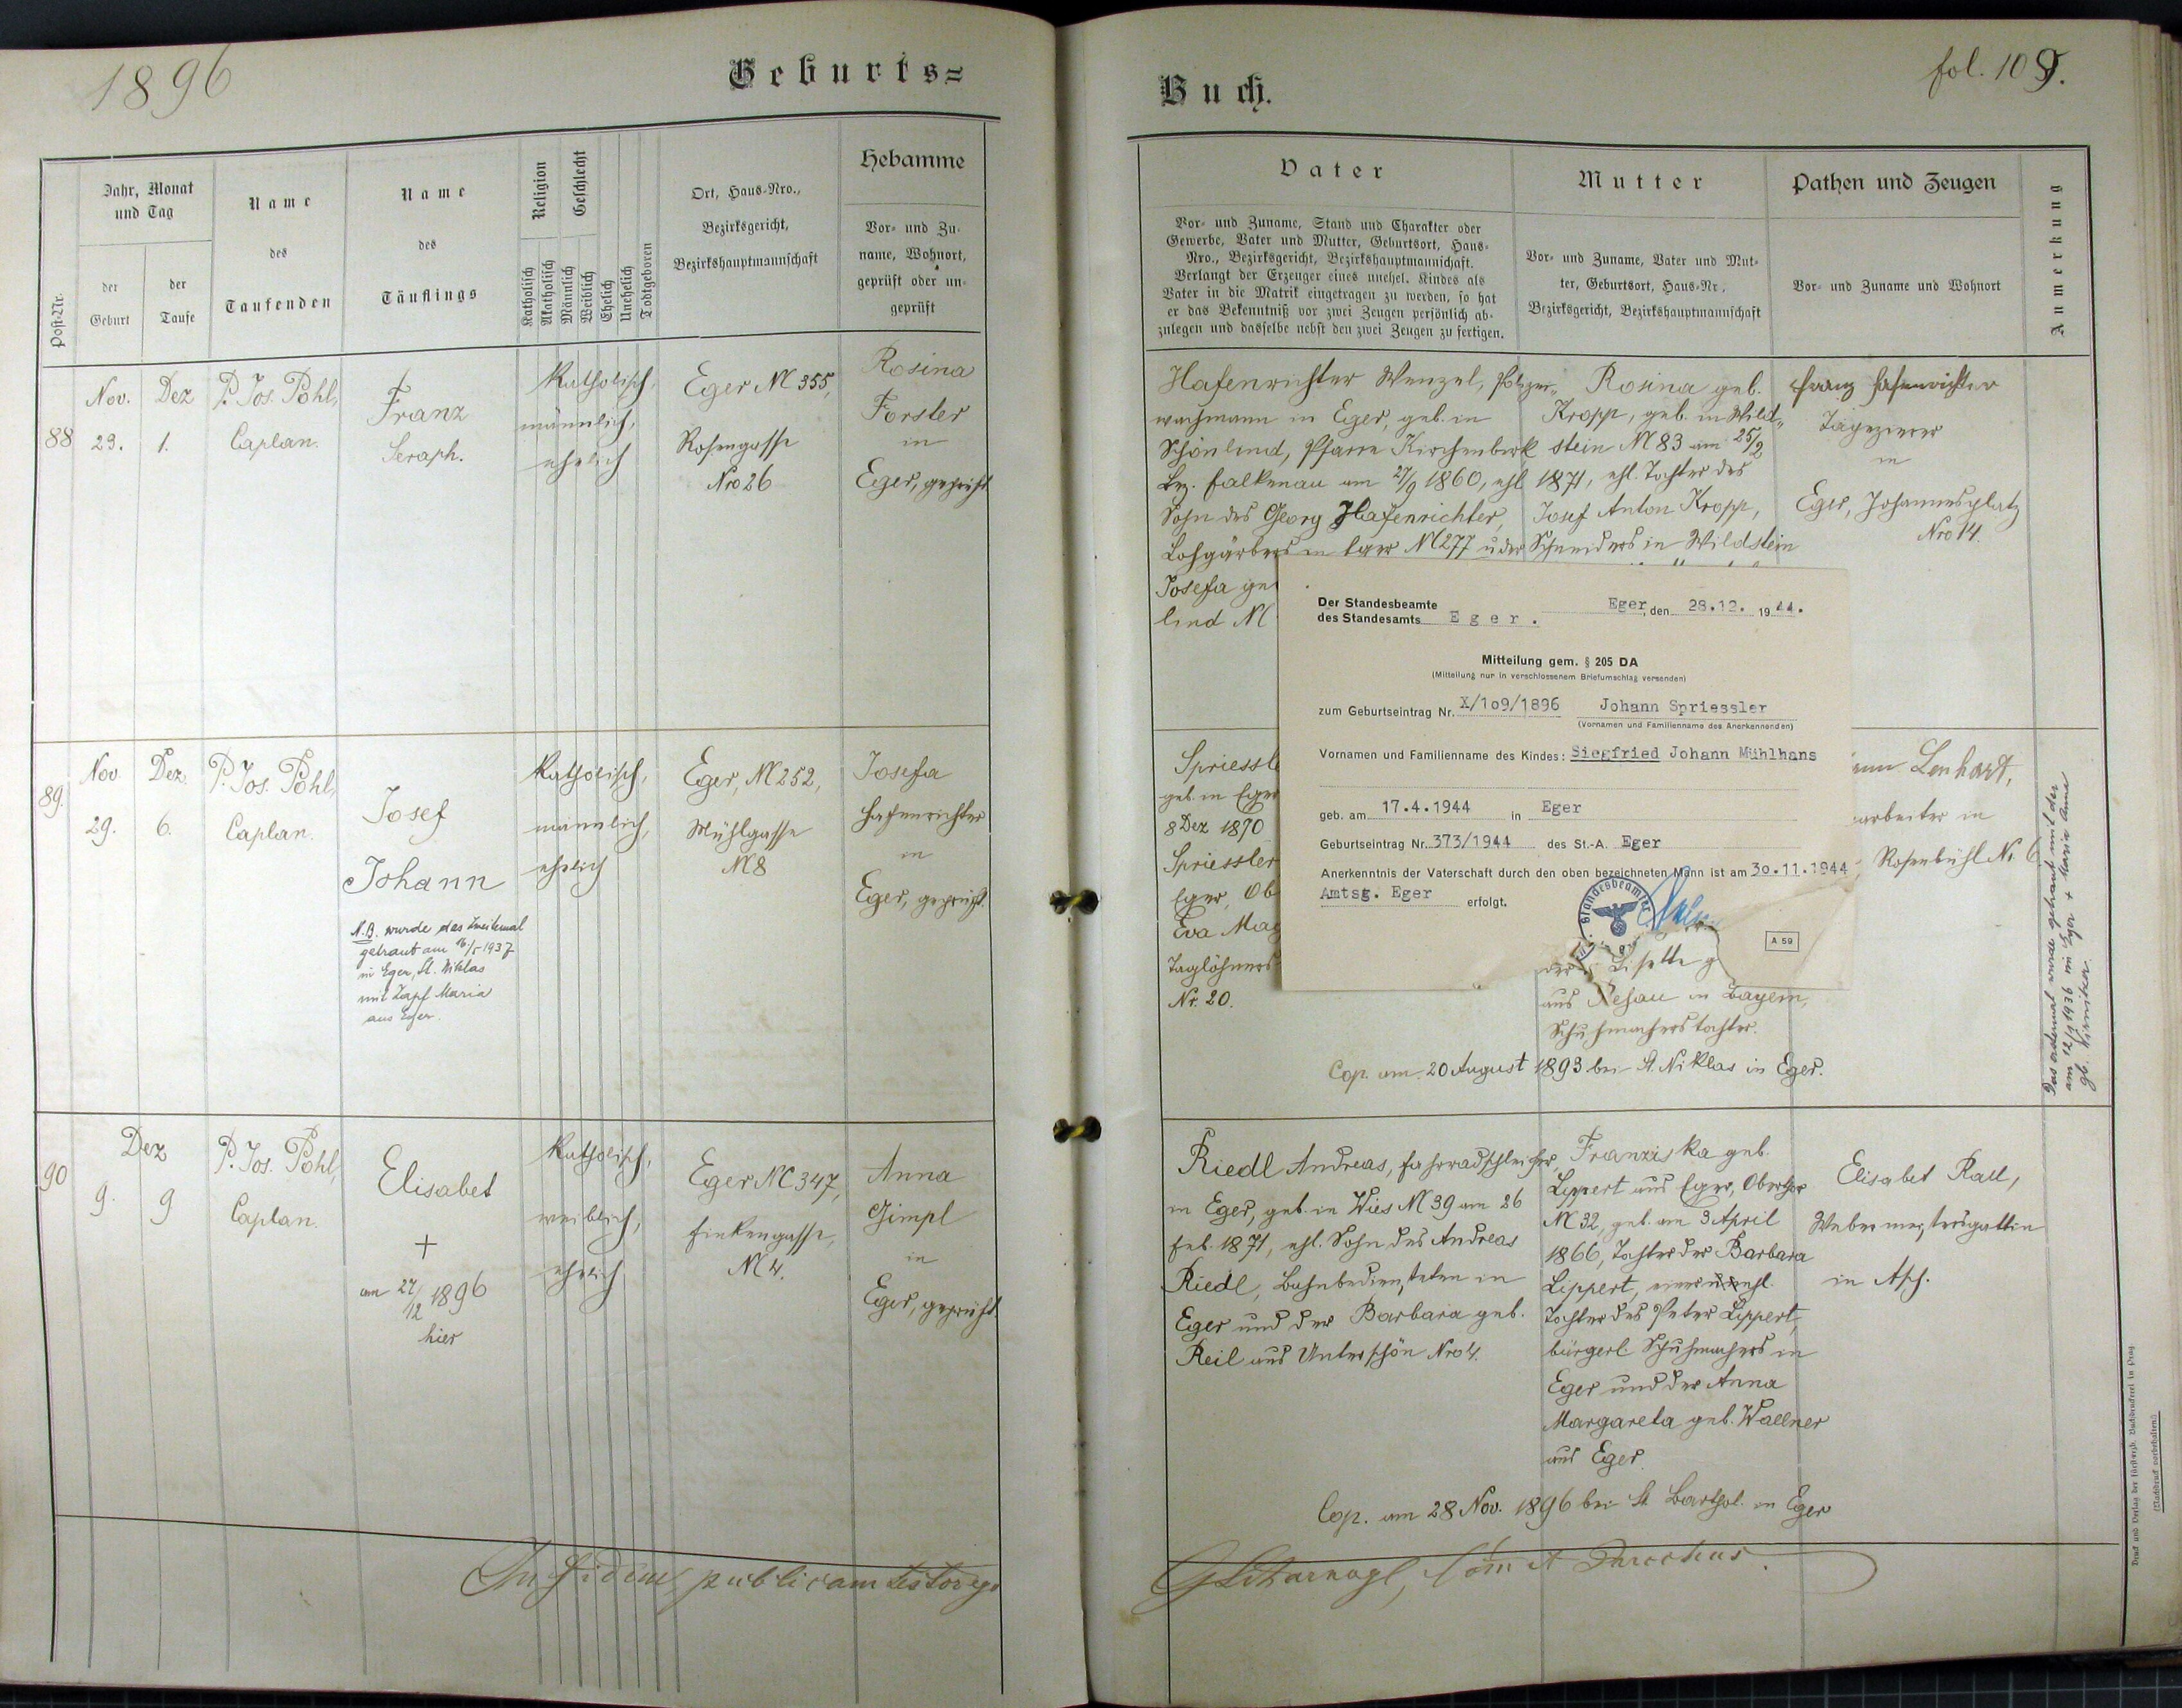 1896
Geburts=
Jahr, Monat
und Tag
Post-Nr.
der
Geburt
der
Taufe
Name
des
Taufenden
Name
des
Täuflings
Religion
Geschlecht
Katholisch
Akatholisch
Männlich
Weiblich
Ehelich
Unehelich
Todtgeboren
Ort, Haus-Nro.,
Bezirksgericht,
Bezirkshauptmannschaft
Hebamme
Vor- und Zu-
name, Wohnort,
geprüft oder un-
geprüft
88
Nov.
23.
Dez
1.
P. Jos. Pohl,
Caplan.
Franz
Seraph.
Katholisch,
männlich,
ehelich
Eger N 355,
Rosengasse
Nro 26
Rosina
Forster
in
Eger, geprüft
89.
Nov
29.
Dez.
6.
P. Jos. Pohl,
Caplan.
Josef
Johann
N.B. wurde das zweitemal
getraut am 16/5 1937
in Eger, St. Niklas
mit Zapf Maria
aus Eger.
Katholisch,
männlich,
ehelich
Eger, N 252,
Mühlgasse
N 8
Josefa
Hafenrichter
in
Eger, geprüft.
90
Dez
9.
9
P. Jos. Pohl,
Caplan.
Elisabet
+
am 27/12 1896
hier
Katholisch,
weiblich,
ehelich
Eger N 347,
Finkengasse,
N 4.
Anna
Gimpl
in
Eger, geprüft.
In fidem publicam testor ego
fol. 109.
Buch.
Vater
Vor- und Zuname, Stand und Charakter oder
Gewerbe, Vater und Mutter, Geburtsort, Haus-
Nro., Bezirksgericht, Bezirkshauptmannschaft.
Verlangt der Erzeuger eines unehel. Kindes als
Vater in die Matrik eingetragen zu werden, so hat
er das Bekenntniß vor zwei Zeugen persönlich ab-
zulegen und dasselbe nebst den zwei Zeugen zu fertigen.
Mutter
Vor- und Zuname, Vater und Mut-
ter, Geburtsort, Haus-Nr.,
Bezirksgericht, Bezirkshauptmannschaft
Pathen und Zeugen
Vor- und Zuname und Wohnort
Anmerkung
Hafenrichter Wenzel, Polizei-
wachmann in Eger, geb. in
Schönlind, Pfarre Kirchenbirk
Bez. Falkenau am 27/9 1860, ehl
Sohn des Georg Hafenrichter,
Lohgärbers in Eger N 277 u der
Josefa ge
lind N
Rosina geb.
Kropp, geb. in Wild-
stein N 83 am 25/2
1871, ehl. Tochter des
Josef Anton Kropp,
Schneiders in Wildstein
Franz Hafenrichter
Tapezierer
in
Eger, Johannesplatz
Nro 14.
Der Standesbeamte
des Standesamts Eger.
Eger, den 28.12. 1944.
Mitteilung gem. § 205 DA
(Mitteilung nur in verschlossenem Briefumschlag versenden)
zum Geburtseintrag Nr. X/1o9/1896 Johann Spriessler
(Vornamen und Familienname des Anerkennenden)
Vornamen und Familienname des Kindes: Siegfried Johann Mühlhans
geb. am 17.4.1944 in Eger
Geburtseintrag Nr. 373/1944 des St.-A. Eger
Anerkenntnis der Vaterschaft durch den oben bezeichneten Mann ist am 3o.11.1944
Amtsg. Eger erfolgt.
A 59
Spriessl
geb. in Eger
8 Dez 1870
Spriessler
Eger, Ob
Eva Mag
Taglöhners
Nr. 20.
der Lisette g
aus Rehau in Bayern,
Schuhmacherstochter.
Cop. am 20 August 1893 bei St. Niklas in Eger.
Lenhart,
arbeiter in
Rosenbühl Nr 6
Das erstemal wurde getraut mit der
am 12/9 1936 in Eger + Marie Anna
gb.
Riedl Andreas, Fahrradschleifer
in Eger, geb. in Wies N 39 am 26
Feb. 1871, ehl. Sohn des Andreas
Riedl, Bahnbediensteten in
Eger und der Barbara geb.
Reil aus Unterschön Nro 4.
Franziska geb.
Lippert aus Eger, Oberthor
N 32, geb. am 3 April
1866, Tochter der Barbara
Lippert, einer ehl.
Tochter des Peter Lippert,
bürgerl. Schuhmachers in
Eger und der Anna
Margareta geb. Wallner
aus Eger.
Elisabet Rall,
Webermeistersgattin
in Asch.
Cop. am 28 Nov. 1896 bei St. Barthol. in Eger
Druck und Verlag der fürsterzb. Buchdruckerei in Prag.
(Nachdruck vorbehalten.)